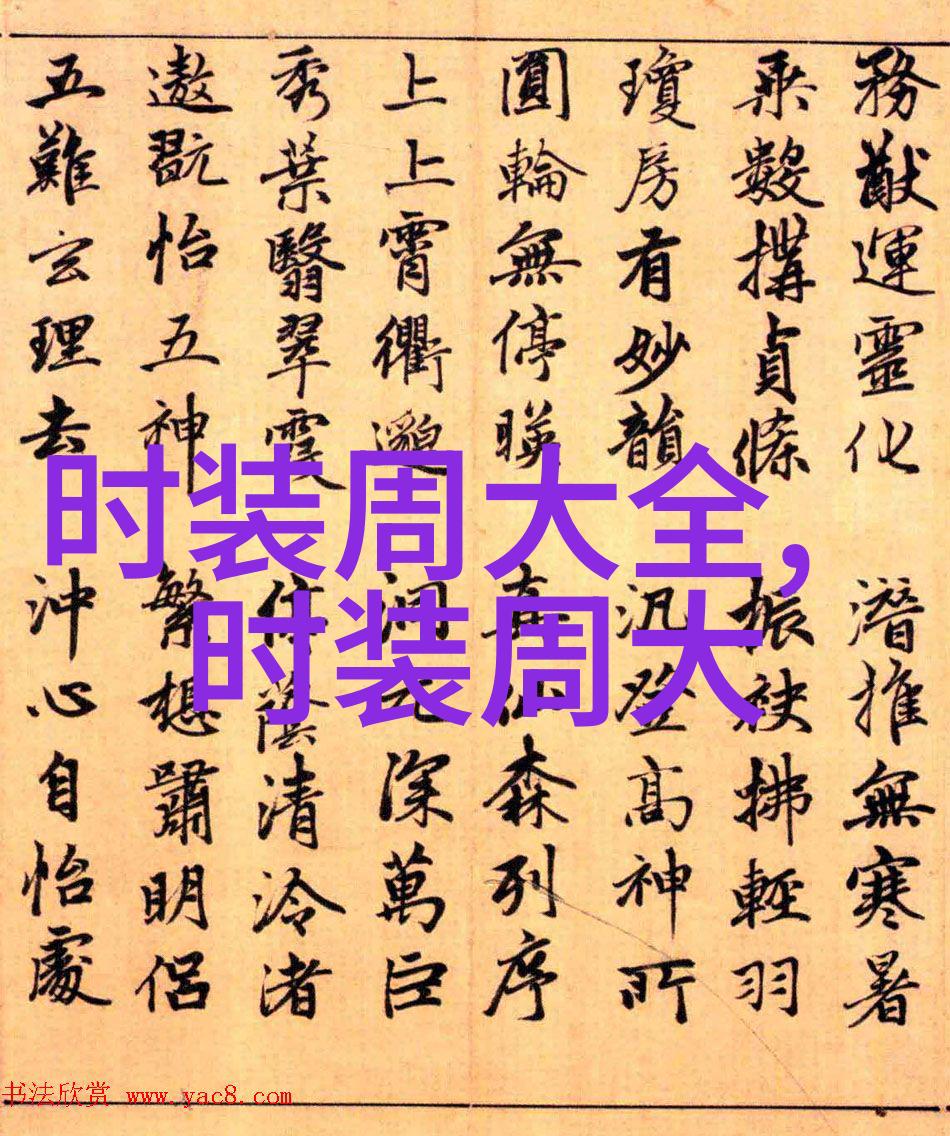 務猷運靈化 潛推無寒暑
乘數構貞條 振袂拂輕羽
瓊房有妙韻 汎登高神所
圓輪無停暎 真仙森列序
上上霄衢邈 洞元深萬巨
秀葉翳翠霞 停蔭清泠渚
遨翫怡五神 繁想嘯明侶
五難玄理去 沖心自怡處
时装周大全,
时装周大
书法欣赏 www.yac8.com